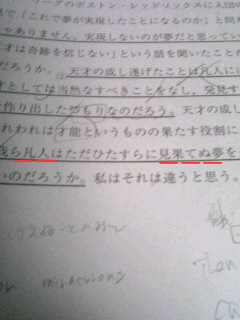 ーグのボストン・レッドソックスに入団
で「これで夢が実現したことになるのか」と問
ゃありません。実現しないのが夢だと思ってい
才は奇跡を信じない」という話を聞いたことが
だろうか。天才の成し遂げたことは凡人に
としては当然なすべきことをなし、発見す
作り出したつもりなのだろう。天才の成し
われわれは才能というものの果たす役割に
ら凡人はただひたすらに見果てぬ夢を
いのだろうか。私はそれは違うと思う。